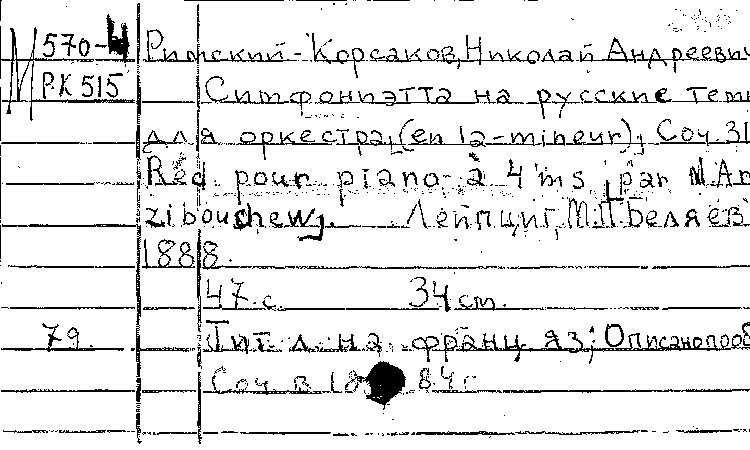 570-4 Римский-Корсаков, Николай Андреевич
М РК 515 Симфониэтта на русские тем
для оркестра, (en la-mineur), Соч. 31
Réd. pour piano à 4 ms par M. Ar
zibouchew. Лейпциг, М.П. Беляев
1888.
47 с. 34 cm.
79. Тит. л. на франц. яз; Описано по об
Соч в 84 г